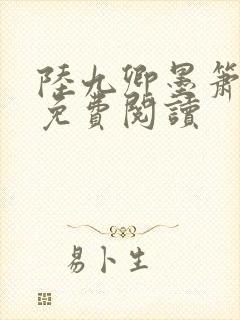 陸九卿墨簫
免費閱讀
易卜生